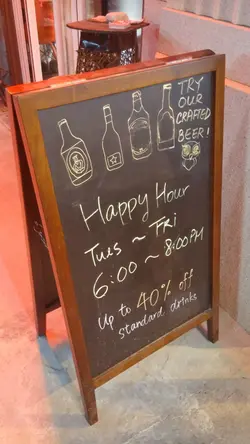 TRY
OUR
CRAFTED
BEER!
Happy Hour
Tues ~ Fri
6:00 ~ 8:00PM
Up to 40% off
standard drinks